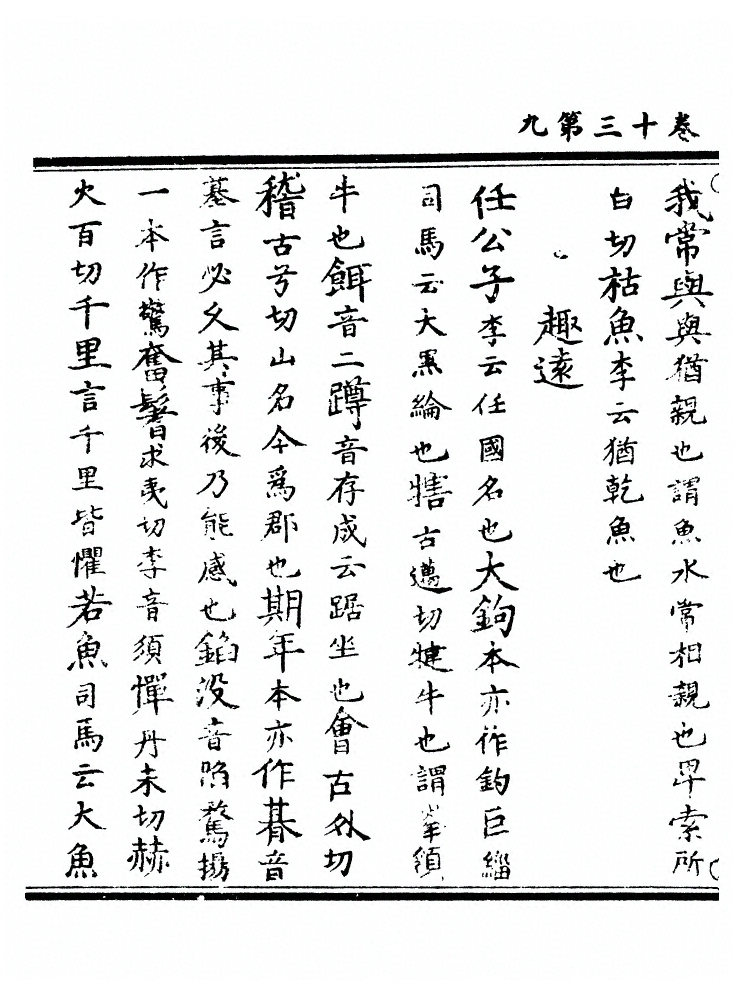 九第三十卷
我常與與猶親也謂魚水常相親也早索所
白切枯魚李云猶乾魚也
趣遠
任公子李云任國名也大鉤本亦作釣巨緇
司馬云大黑綸也犗古邁切犍牛也謂犗領
牛也餌音二蹲音存成云踞坐也會古外切
稽古兮切山名今爲郡也期年本亦作朞音
朞言必久其事後乃能感也錎没音陷驚揚
一本作驚奮鬐求夷切李音須憚丹末切赫
火百切千里言千里皆懼若魚司馬云大魚